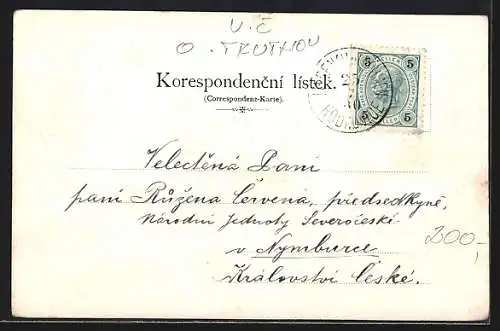 V.Č
O. TRUTNOV
Korespondenční lístek.
(Correspondenz-Karte).
5 5
5 5
Velectěná Paní
paní Růžena Červená, předsedkyně,
Národní Jednoty Severočeské
v Nymburce
Království České.
200,-